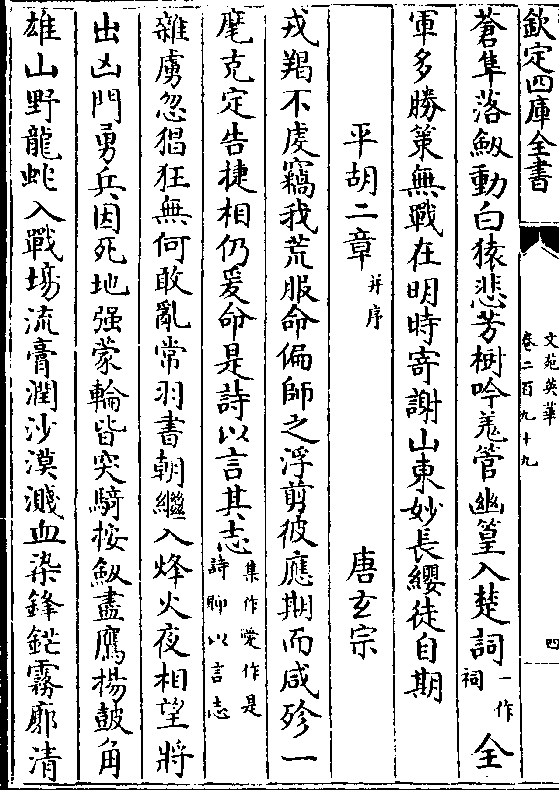 欽定四庫全書
文苑英華
卷二百九十九
四
蒼隼落劔動白猿悲芳樹吟羌管幽篁入楚詞一作祠全
軍多勝策無戰在明時寄謝山東妙長纓徒自期
平胡二章并序 唐玄宗
戎羯不虔竊我荒服命偏師之浮剪彼應期而咸殄一
麾克定告捷相仍爰命是詩以言其志集作爰作是詩聊以言志
雜虜忽猖狂無何敢亂常羽書朝繼入烽火夜相望將
出凶門勇兵因死地强蒙輪皆突騎按劔盡鷹揚鼓角
雄山野龍虵入戰場流膏潤沙漠濺血染鋒鋩霧廓清